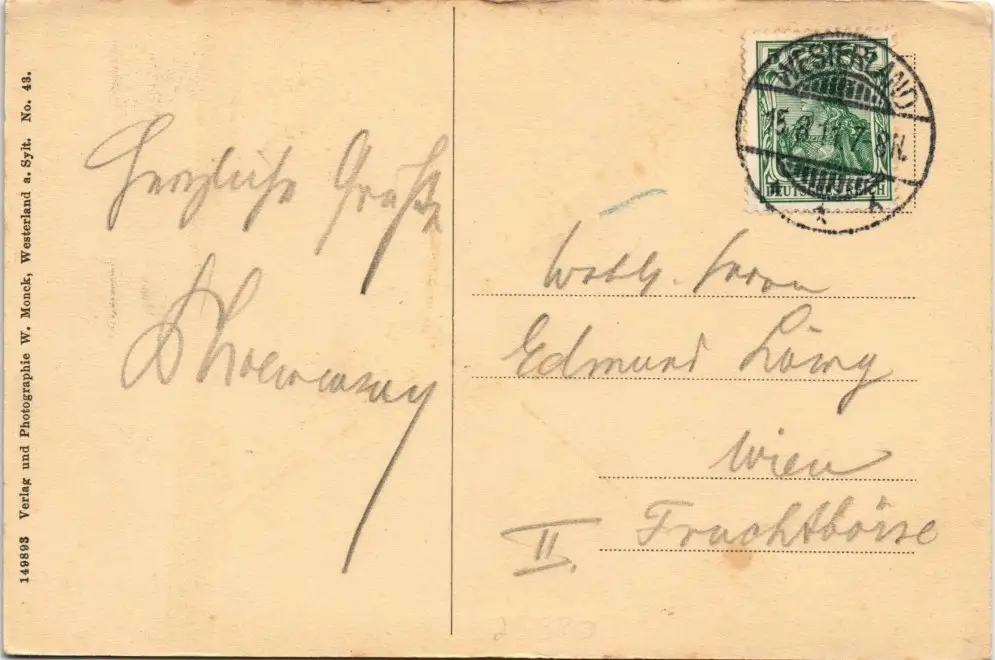 149893 Verlag und Photographie W. Monck, Westerland a. Sylt. No. 43.
Herzliche Grüße
5 5
WESTERLAND
15.8.11 7-8N.
DEUTSCHES REICH
* b
Wohlg. Herrn
Edmund Löwy
Wien
II. Fruchtbörse